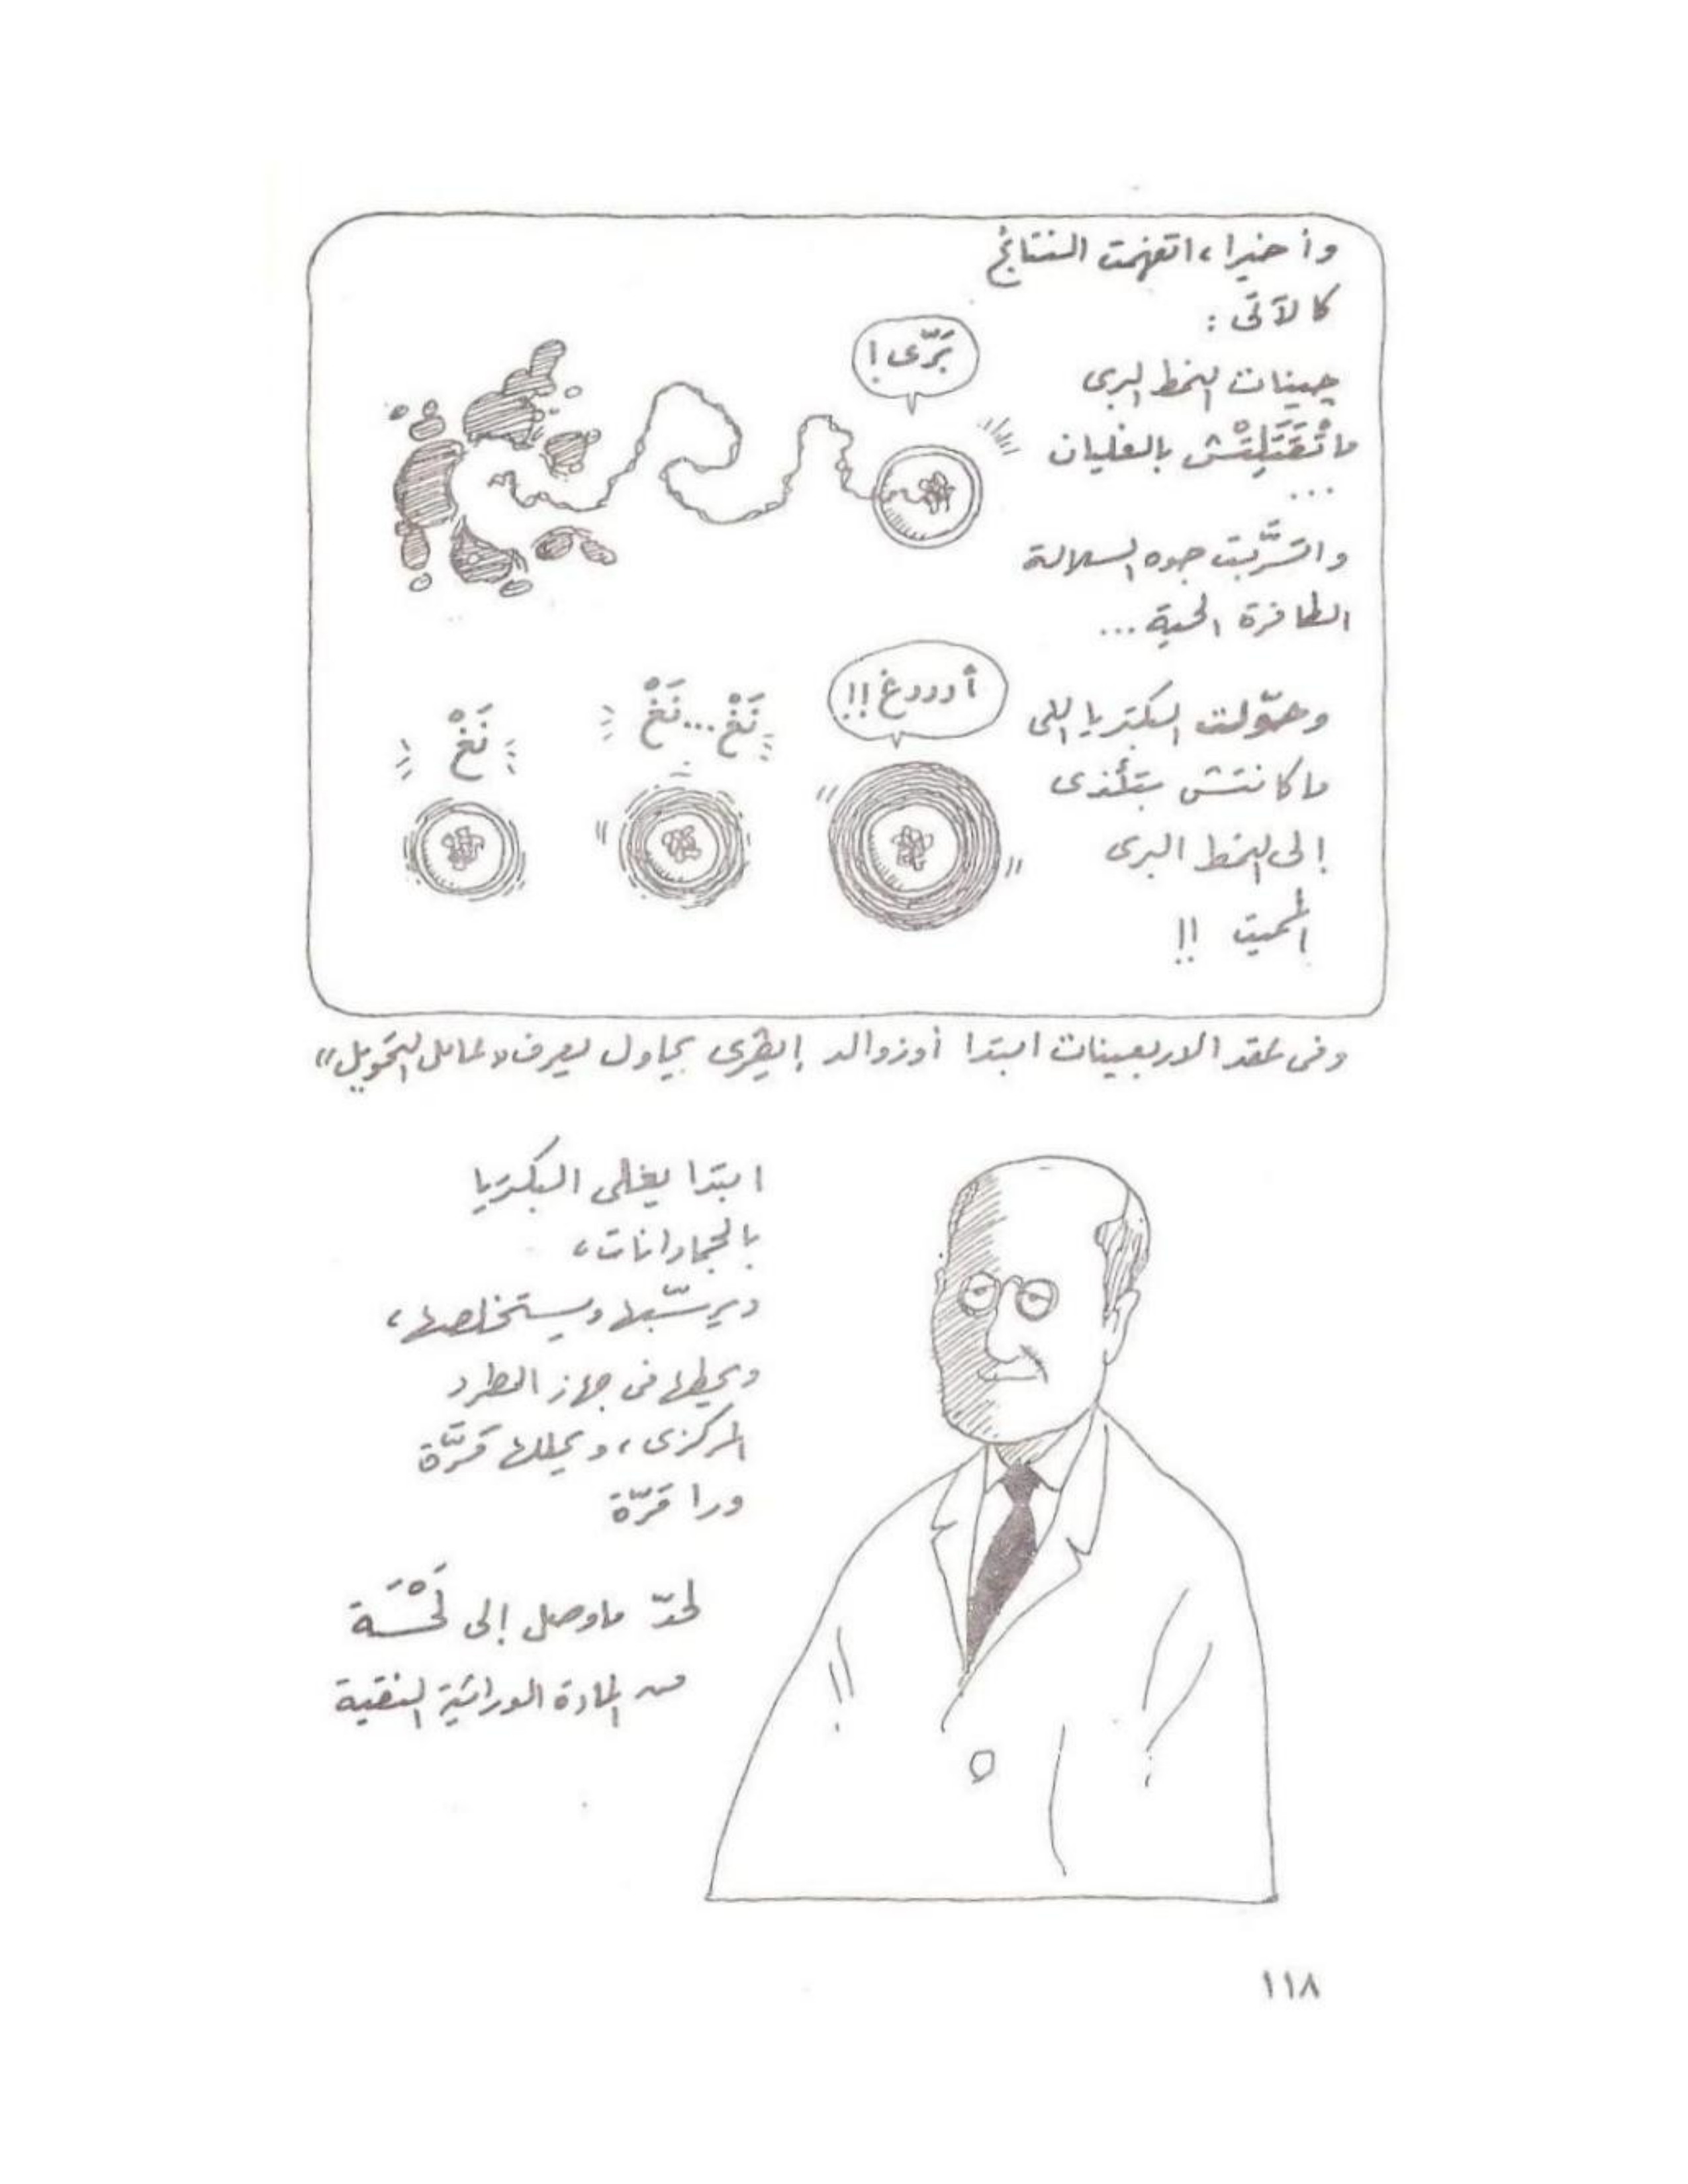 وأخيرا، اتفهمت النتائج
كالآتى :
جينات النمط البرى
ماتْقَتَلِتْش بالغليان
...
واتسَّربت جوه السلالة
الطافرة الحية...
وحوّلت البكتريا اللى
ماكانتش بتأذى
إلى النمط البرى
المميت !!
بَرّى !
أدددغ !!
نَغْ...نَغْ
نَغْ
وفى عقد الاربعينات ابتدا أوزوالد إيڤرى يحاول يعرف «عامل التحويل»
ابتدا يغلى البكتريا
بالجمادانات،
ويرسّبها ويستخلصها،
ويحطها فى جهاز الطرد
المركزى، ويحللها مَرَّة
ورا مَرّة
لحدّ ماوصل إلى لَحْسَة
من المادة الوراثية النقية
١١٨